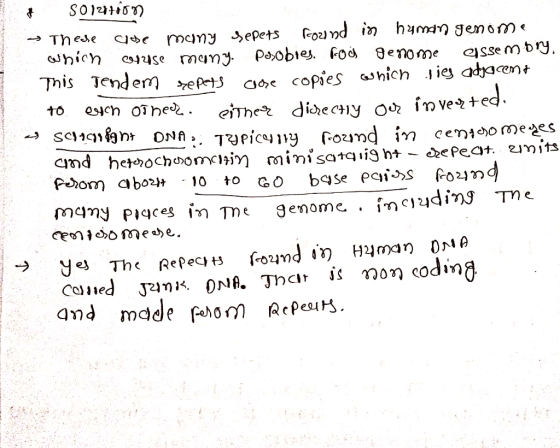 * Solution
→ These are many repets found in human genome
which cause many. Probles. For genome assembry.
This Tendem repets are copies which lies adjacent
to each other. either directly or inverted.
→ Satalight DNA:. Typically found in centromeres
and heterochromatin minisatalight - repeat units
from about 10 to 60 base pairs found
many places in the genome. including the
centromere.
→ yes The Repeats found in Human DNA
called Junk DNA. That is non coding
and made from Repeats.